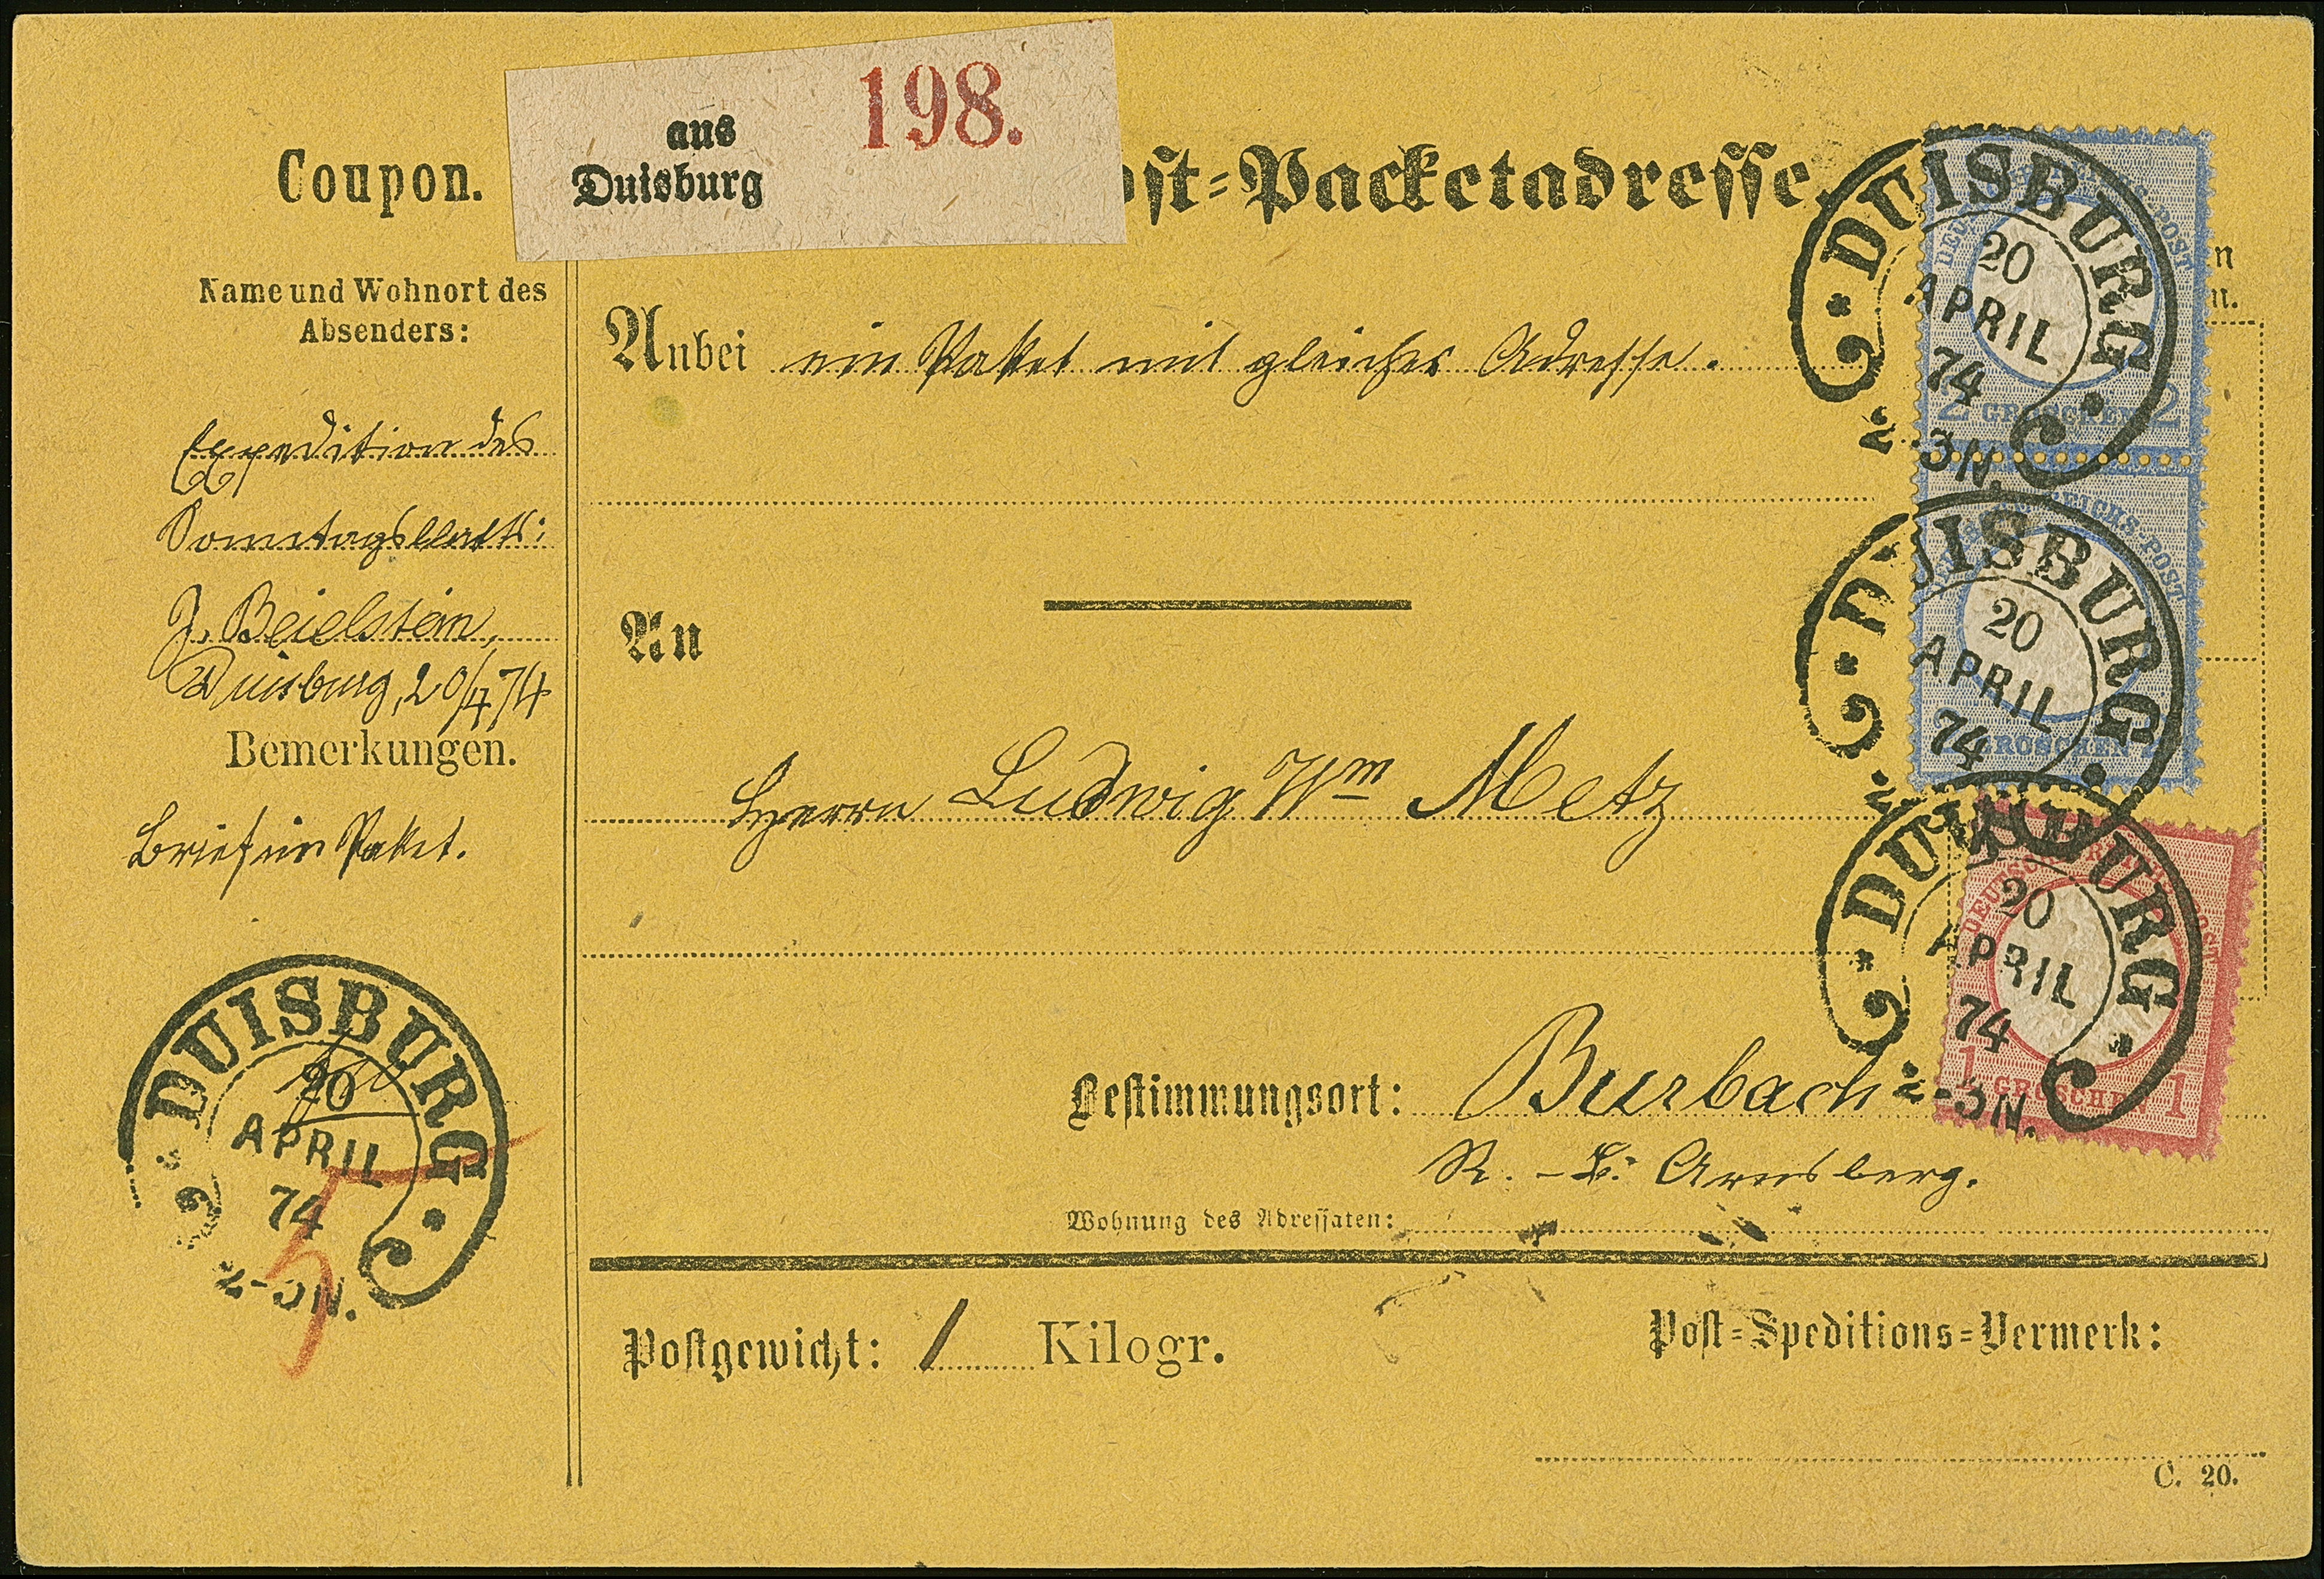 aus
Duisburg
198.
Coupon.
ost-Packetadresse.
Name und Wohnort des
Absenders:
Expedition des
Sonntagsblatts:
J. Beielstein,
Duisburg, 20/4 74
Bemerkungen.
Brief im Paket.
DUISBURG
20
APRIL
74
2-3N.
5
Anbei ein Paket mit gleicher Adresse.
An
Herrn Ludwig Wm Metz
Bestimmungsort: Burbach
R.-B. Arnsberg.
Wohnung des Adressaten:
Postgewicht: 1 Kilogr.
Post-Speditions-Vermerk:
C. 20.
n
n.
DUISBURG
20
APRIL
74
2-3N.
2 GROSCHEN 2
REICHS-POST
DUISBURG
20
APRIL
74
2 GROSCHEN 2
DUISBURG
20
APRIL
74
2-3N.
1 GROSCHEN 1